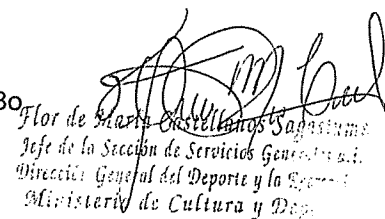 Bo
Flor de María Castellanos Sagastume
Jefe de la Sección de Servicios Generales a.i.
Dirección General del Deporte y la
Ministerio de Cultura y